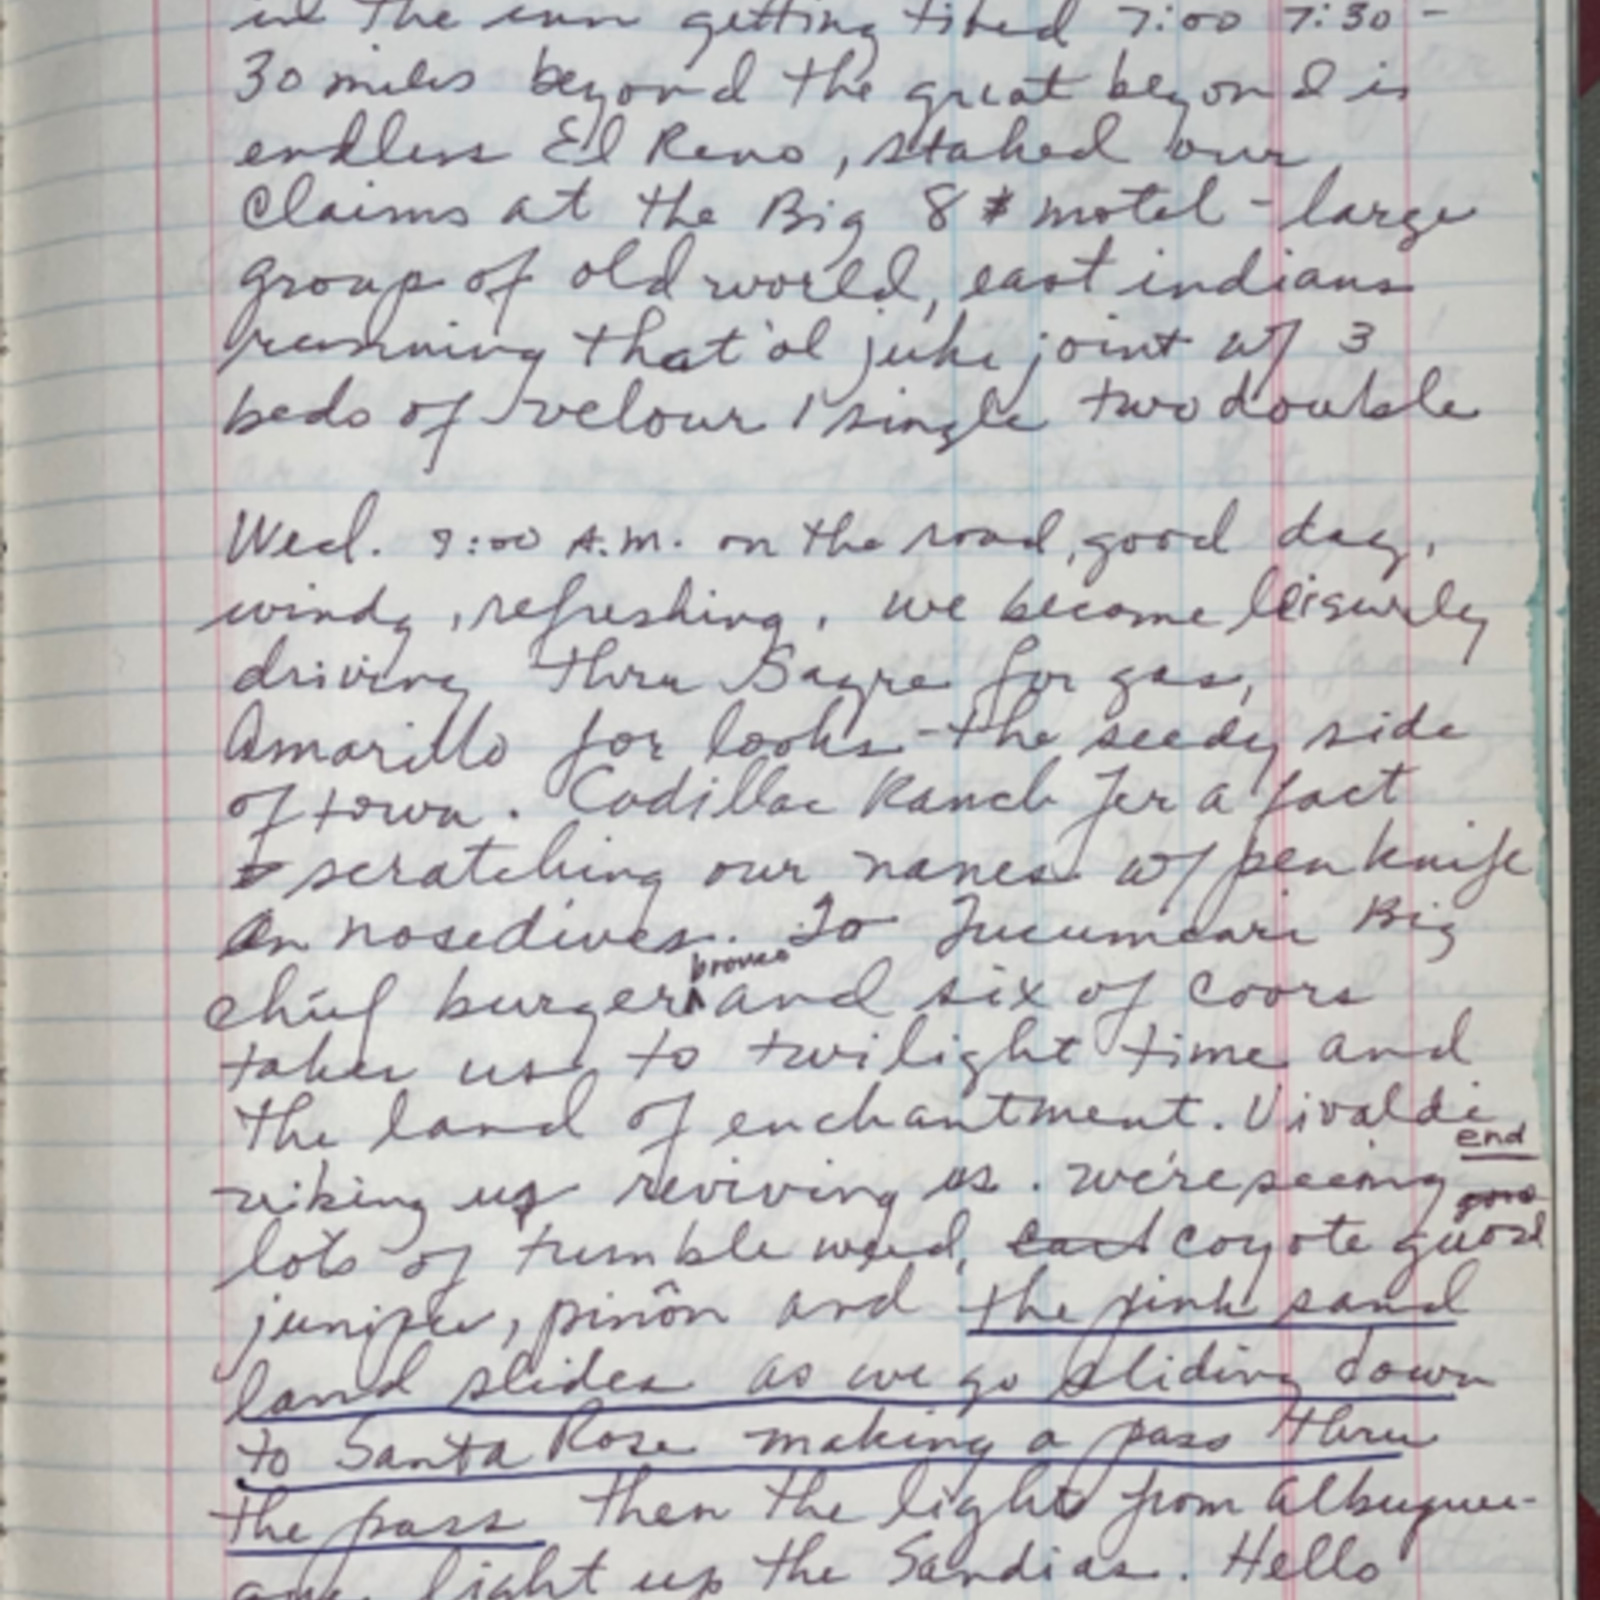 in the sun getting tired 7:00 7:30 -
30 miles beyond the great beyond is
endless El Reno, staked our
claims at the Big 8 motel - large
group of old world, east indians
running that 'ol juke joint w/ 3
beds of velour 1 single two double
Wed. 9:00 A.M. on the road, good day,
windy, refreshing, we become leisurely
driving thru Sayre for gas,
Amarillo for looks - the seedy side
of town. Cadillac Ranch fer a fact
scratching our names w/ pen knife
on nosedives. To Tucumcari Big
bronco
chief burger and six of coors
takes us to twilight time and
the land of enchantment. Vivaldi
end
viking us reviving us. we're seeing
lots of tumble weed, coyote guord
juniper, pinôn and the pink sand
land slides as we go sliding down
to Santa Rosa making a pass thru
the pass then the light from Albuquer-
que light up the Sandias. Hello